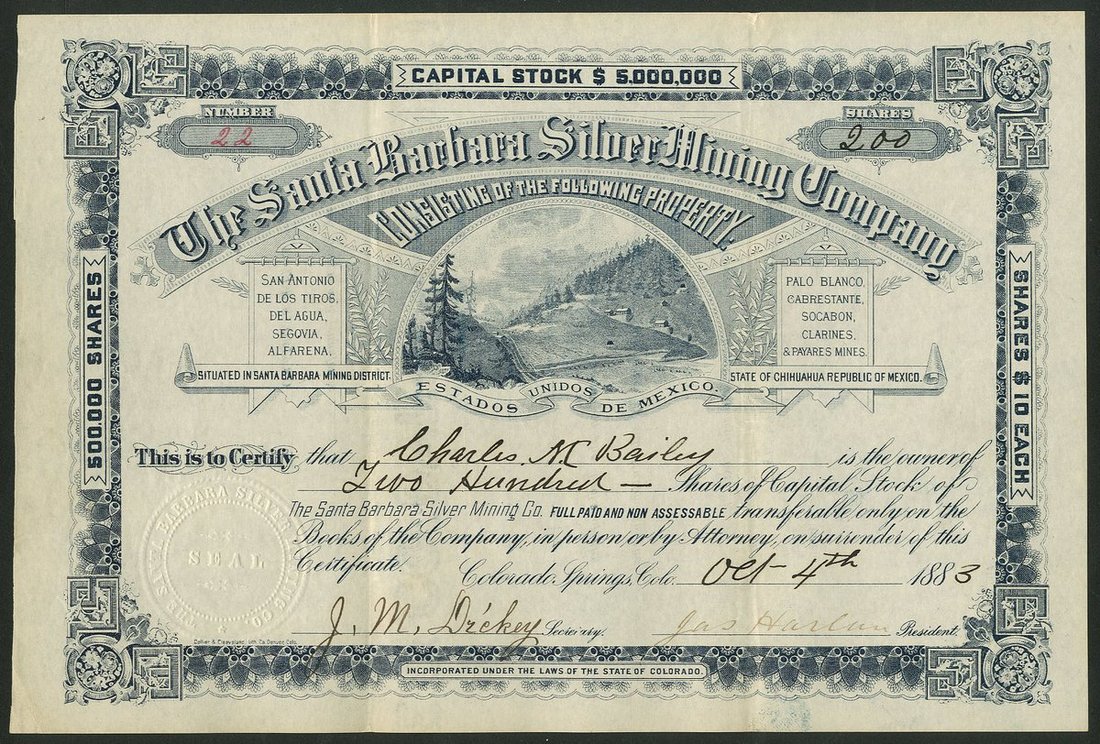 CAPITAL STOCK $ 5,000,000
NUMBER
22
SHARES
200
The Santa Barbara Silver Mining Company
CONSISTING OF THE FOLLOWING PROPERTY.
SAN ANTONIO
DE LOS TIROS,
DEL AGUA,
SEGOVIA,
ALFARENA.
PALO BLANCO,
CABRESTANTE,
SOCABON,
CLARINES,
& PAYARES MINES.
SITUATED IN SANTA BARBARA MINING DISTRICT.
STATE OF CHIHUAHUA REPUBLIC OF MEXICO.
ESTADOS UNIDOS DE MEXICO
500,000 SHARES
SHARES $ 10 EACH
This is to Certify that Charles M Bailey is the owner of
Two Hundred — Shares of Capital Stock of
The Santa Barbara Silver Mining Co. FULL PAID AND NON ASSESSABLE transferable only on the
Books of the Company, in person or by Attorney, on surrender of this
Certificate. Colorado Springs, Colo. Oct 4th 1883
THE SANTA BARBARA SILVER MINING CO.
SEAL
J. M. Dickey Secretary. Jas Harlan President.
INCORPORATED UNDER THE LAWS OF THE STATE OF COLORADO.